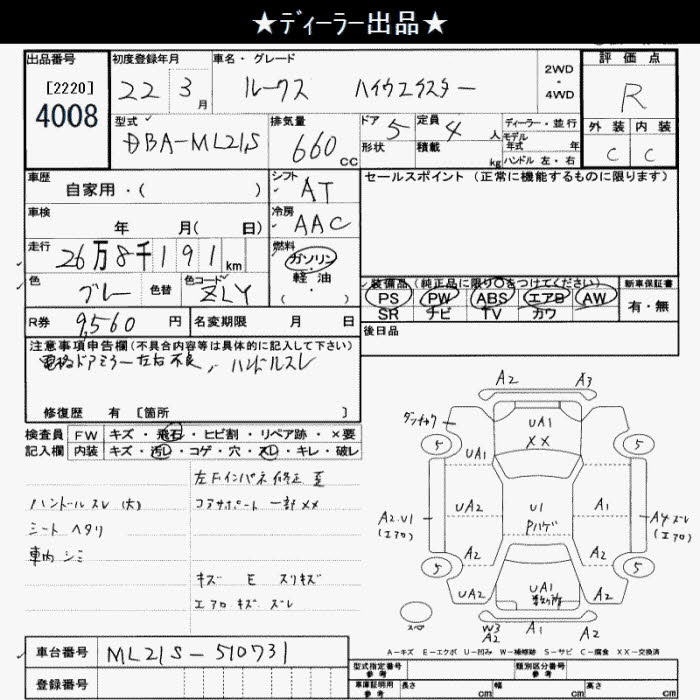 ★ディーラー出品★
出品番号
[2220]
4008
初度登録年月
22 3月
車名・グレード
ルークス ハイウエイスター
2WD・4WD
評価点
R
外装 内装
C C
型式
DBA-ML21S
排気量
660 CC
ドア 5
形状
定員 4 人
積載 kg
ディーラー・並行
モデル年式 年
ハンドル 左・右
車歴
自家用・( )
シフト AT
セールスポイント(正常に機能するものに限ります)
車検
年 月( 日)
冷房 AAC
走行
26万8千191km
燃料
ガソリン・軽油・( )
色
ブルー
色替
色コード
ZLY
装備品(純正品に限り○をつけてください)
PS PW ABS エアB AW
SR ナビ TV カワ
新車保証書
有・無
R券 9,560 円
名変期限 月 日
後日品
注意事項申告欄(不具合内容等は具体的に記入して下さい)
電格ドアミラー左右不良, ハンドルスレ
修復歴 有 [箇所 ]
検査員記入欄
FW キズ・飛石・ヒビ割・リペア跡・×要
内装 キズ・汚レ・コゲ・穴・スレ・キレ・破レ
ハンドルスレ(大)
シートヘタリ
車内シミ
左Fインパネ修正 歪
コアサポート一部××
キズ E スリキズ
エアロキズ ズレ
A2 A3
UA1
××
5 5
UA1
UA2 U1 A1
Pハゲ
A2.U1
(エアロ)
A4ズレ
(エアロ)
A2 A2
5 5
UA2 UA1 A2
W3
A2 A1 A2
スペア
A-キズ E-エクボ U-凹み W-補修跡 S-サビ C-腐食 XX-交換済
車台番号 ML21S-510731
登録番号
型式指定番号 参考
類別区分番号 参考
車庫証明用 参考 長さ cm 幅 cm 高さ cm